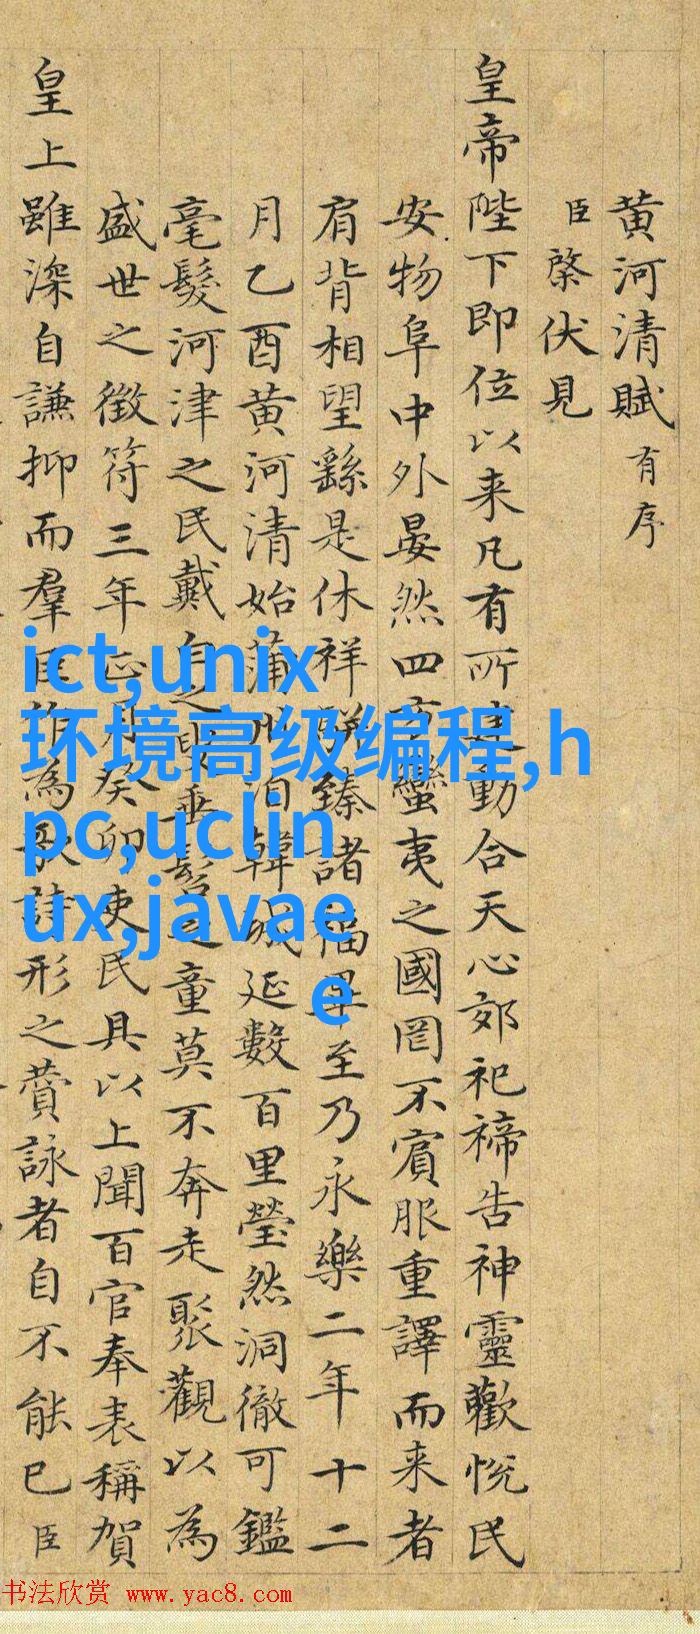 黄河清賦有序
臣棨伏見
皇帝陛下即位以来凡有所建動合天心郊祀禘告神靈歡悅民
安物阜中外晏然四方蠻夷之國罔不賓服重譯而来者
肩背相望繇是休祥駢臻諸福畢至乃永樂二年十二
月乙酉黄河清始蒲州洎韓城延數百里瑩然洞徹可鑑
毫髮河津之民戴白之叟垂髫之童莫不奔走聚觀以為
盛世之徵符三年正月癸卯吏民具以上聞百官奉表稱賀
皇上雖深自謙抑而羣臣作為歌詩形之賛詠者自不能已臣
ict,unix
环境高级编程,h
pc,uclin
ux,javae
e
书法欣赏 www.yac8.com